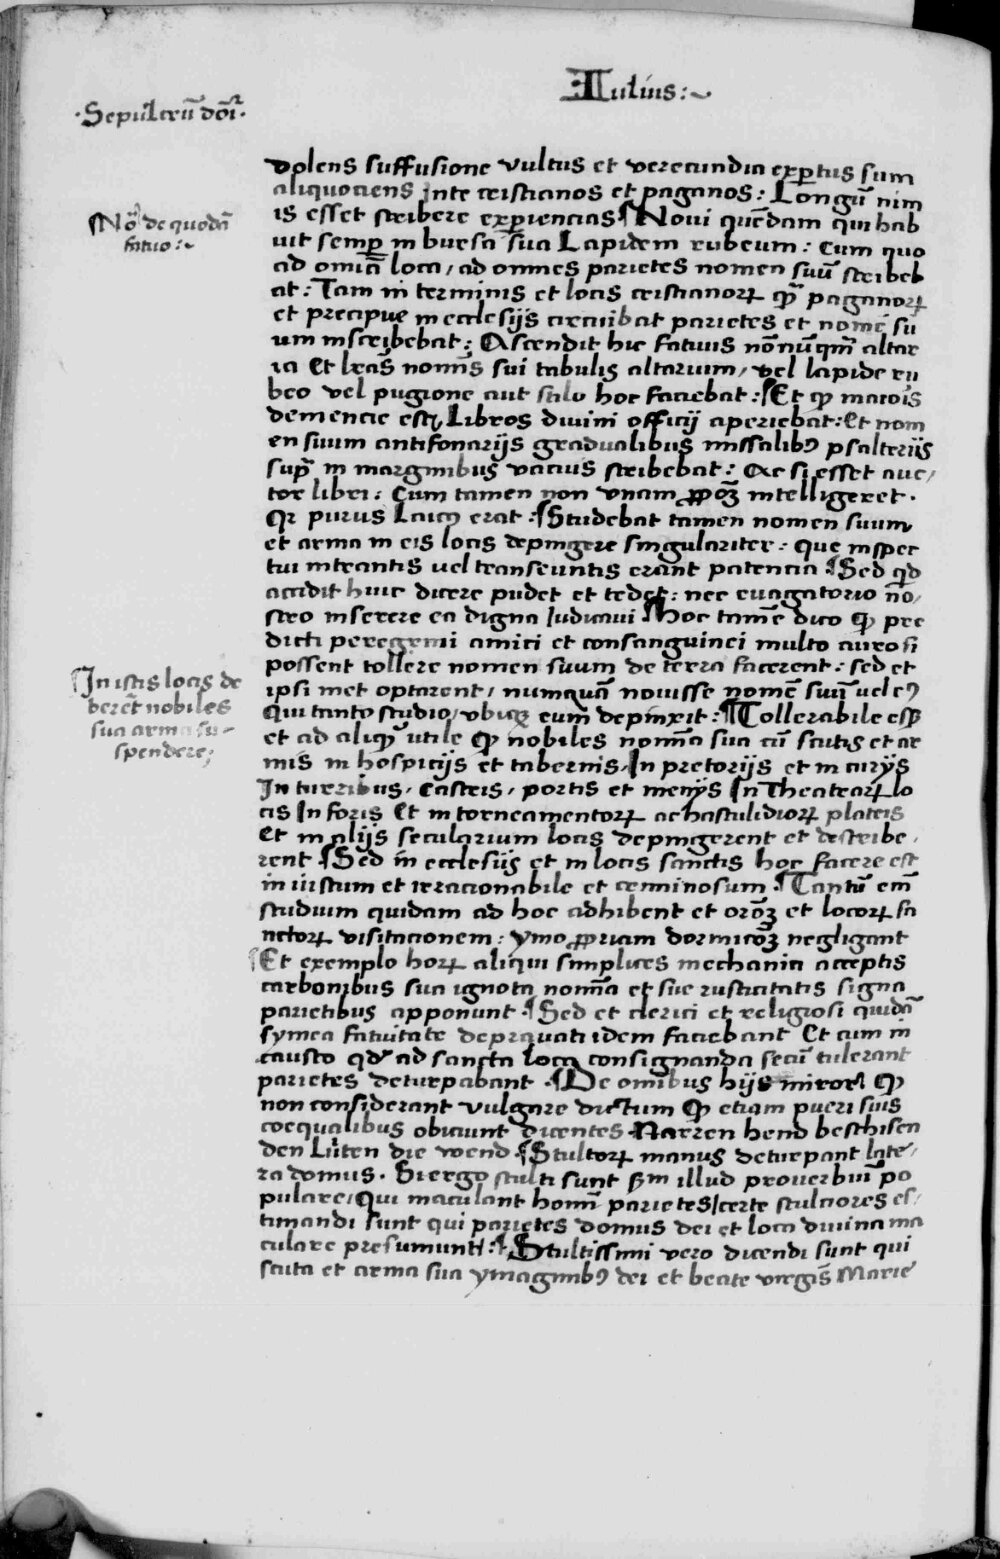 Iulius:~
·Sepulcrū dōi·
dolens suffusione vultus et verecundia exꝑtus sum
aliquociens inte cristianos et paganos: Longū nim
¶Nōͣ de quodā
fatuo:~
is esset scribere exꝑiencias ¶Noui quēdam qui hab
uit semꝑ in bursa sua Lapidem rubeum: Cum quo
ad omīa loca, ad omnes parietes nomen suū scribeb
at: Tam in terminis et locis cristianorꝝ qͣꝫ paganorꝝ
et precipue in ecclesijs circuibat parietes et nomē su
um inscribebat: Ascendit hic fatuus nōnūqm̄ altar
ia Et lr̄as nomīs sui tabulis altarium, vel lapide ru
beo vel pugione aut stilo hoc faciebat: ¶Et ꝙ maiois
demencie est, Libros diuini officij aperiebat: Et nom
en suum antifonarijs gradualibus missalibꝰ psalterijs
supͣ in marginibus vacuis scribebat: Ac si esset auc,
tor libri: Cum tamen non vnam ꝓpōꝫ intelligeret.
Qr purus Laicꝰ erat: ¶Studebat tamen nomen suum
et arma in eis locis depingere singulariter: Que inspec
tui intrantis uel transeuntis erant patencia ¶Sed qͥd
accidit huic dicere pudet et tedet: nec euagatorio nō,
stro inserere ea digna Iudicaui ¶Hoc tamē dico ꝙ pre
dicti peregrini amici et consanguinei multo auro si
possent tollere nomen suum de terra facerent: sed et
¶In istis locis de
berēt nobiles
sua arma su-
spendere;
ipsi met optarent, numquā nouisse nomē suū uel eꝰ
Qui tanto studio, vbiqꝫ eum depinxit: ¶Tollerabile esꝫ
et ad aliqͥd utile ꝙ nobiles nomīa sua cū scutis et ar
mis in hospicijs et tabernis, In pretorijs et in curijs
In turribus, Castris, portis et menijs In Theatrarꝝ lo
cis In foris Et in torneamentorꝝ ac hastiludiorꝝ plateis
Et in alijs secularium locis depingerent et describe,
rent ¶Sed in ecclesijs et in locis sanctis hoc facere est
in iustum et irracionabile et criminosum ¶Tantū em̄
studium quidam ad hoc adhibent et orōꝫ et locorꝝ sa
nctorꝝ visitacionem: ymo ꝓpriam dormicōꝫ negligant
¶Et exemplo horꝝ aliqui simplices mechanici acceptis
carbonibus sua ignota nomīa et sue rusticitatis signa
parietibus apponunt ¶Sed et clerici et religiosi quidā
symea fatuitate deprauati idem faciebant Et cum in
causto qd' ad sancta loca consignanda secū tulerant
parietes deturpabant ¶De omībus hijs miror ꝙ
non considerant vulgare dictum ꝙ etiam pueri suis
coequalibus obiciunt dicentes Narren hend beschisen
den Lüten die wend ¶Stultorꝝ manus deturpant late,
ra domus. Si ergo stulti sunt sm̄ illud prouerbiū po
pulare, Qui maculant homī parietes, certe stulciores es,
timandi sunt qui parietes domus dei et loca diuina ma
culare presumunt: ¶Stultissimi vero dicendi sunt qui
scuta et arma sua ymaginibꝰ dei et beate virgīs Marie